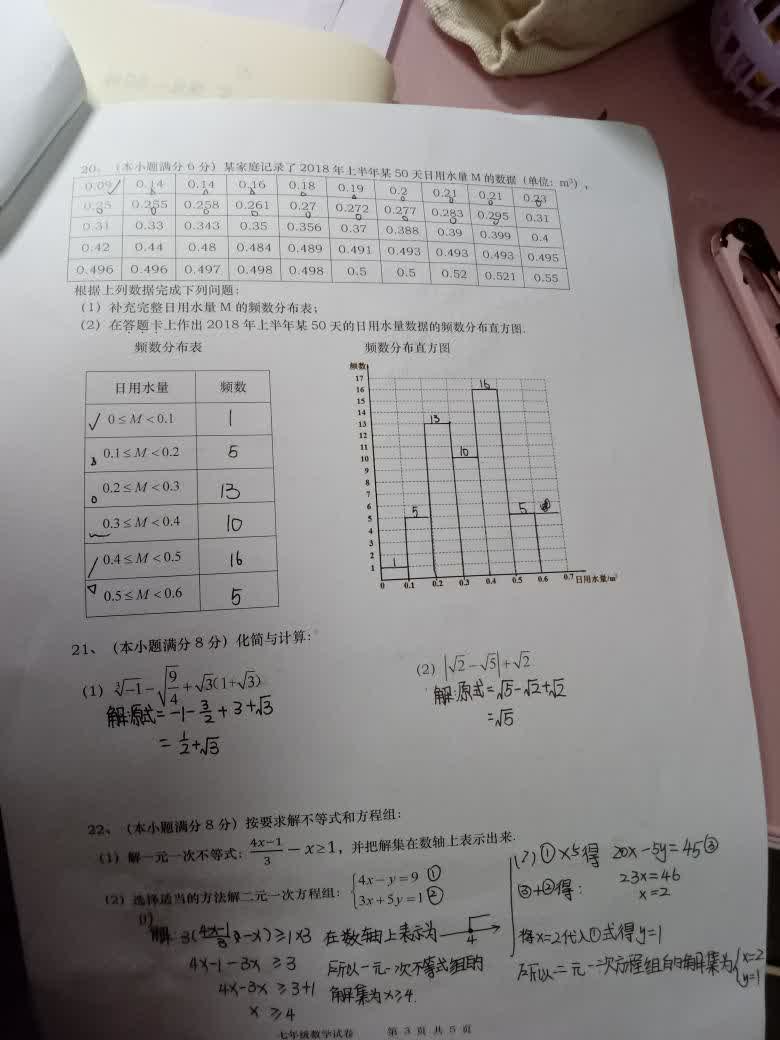 20、(本小题满分 6 分) 某家庭记录了 2018 年上半年某 50 天日用水量 M 的数据 (单位: m³),
0.09 0.14 0.14 0.16 0.18 0.19 0.2 0.21 0.21 0.23
0.25 0.255 0.258 0.261 0.27 0.272 0.277 0.283 0.295 0.31
0.31 0.33 0.343 0.35 0.356 0.37 0.388 0.39 0.399 0.4
0.42 0.44 0.48 0.484 0.489 0.491 0.493 0.493 0.493 0.495
0.496 0.496 0.497 0.498 0.498 0.5 0.5 0.52 0.521 0.55
根据上列数据完成下列问题:
(1) 补充完整日用水量 M 的频数分布表;
(2) 在答题卡上作出 2018 年上半年某 50 天的日用水量数据的频数分布直方图.
频数分布表
日用水量 频数
0≤M<0.1 1
0.1≤M<0.2 5
0.2≤M<0.3 13
0.3≤M<0.4 10
0.4≤M<0.5 16
0.5≤M<0.6 5
频数分布直方图
频数
17
16
15
14
13
12
11
10
9
8
7
6
5
4
3
2
1
1 5 13 10 16 5
0 0.1 0.2 0.3 0.4 0.5 0.6 0.7 日用水量/m³
21、(本小题满分 8 分) 化简与计算:
(1) ∛-1-√9/4+√3(1+√3)
解:原式=-1-3/2+3+√3
=1/2+√3
(2) |√2-√5|+√2
解:原式=√5-√2+√2
=√5
22、(本小题满分 8 分) 按要求解不等式和方程组:
(1) 解一元一次不等式: 4x-1/3-x≥1, 并把解集在数轴上表示出来.
(2) 选择适当的方法解二元一次方程组: {4x-y=9 ①
3x+5y=1 ②
(1)
解: 3(4x-1/3-x)≥1×3
4x-1-3x≥3
4x-3x≥3+1
x≥4
在数轴上表示为
4
所以一元一次不等式组的
解集为x≥4.
(2) ①×5得 20x-5y=45③
③+②得: 23x=46
x=2
将x=2代入①式得y=1
所以二元一次方程组的解集为{x=2
y=1
七年级数学试卷 第 3 页 共 5 页